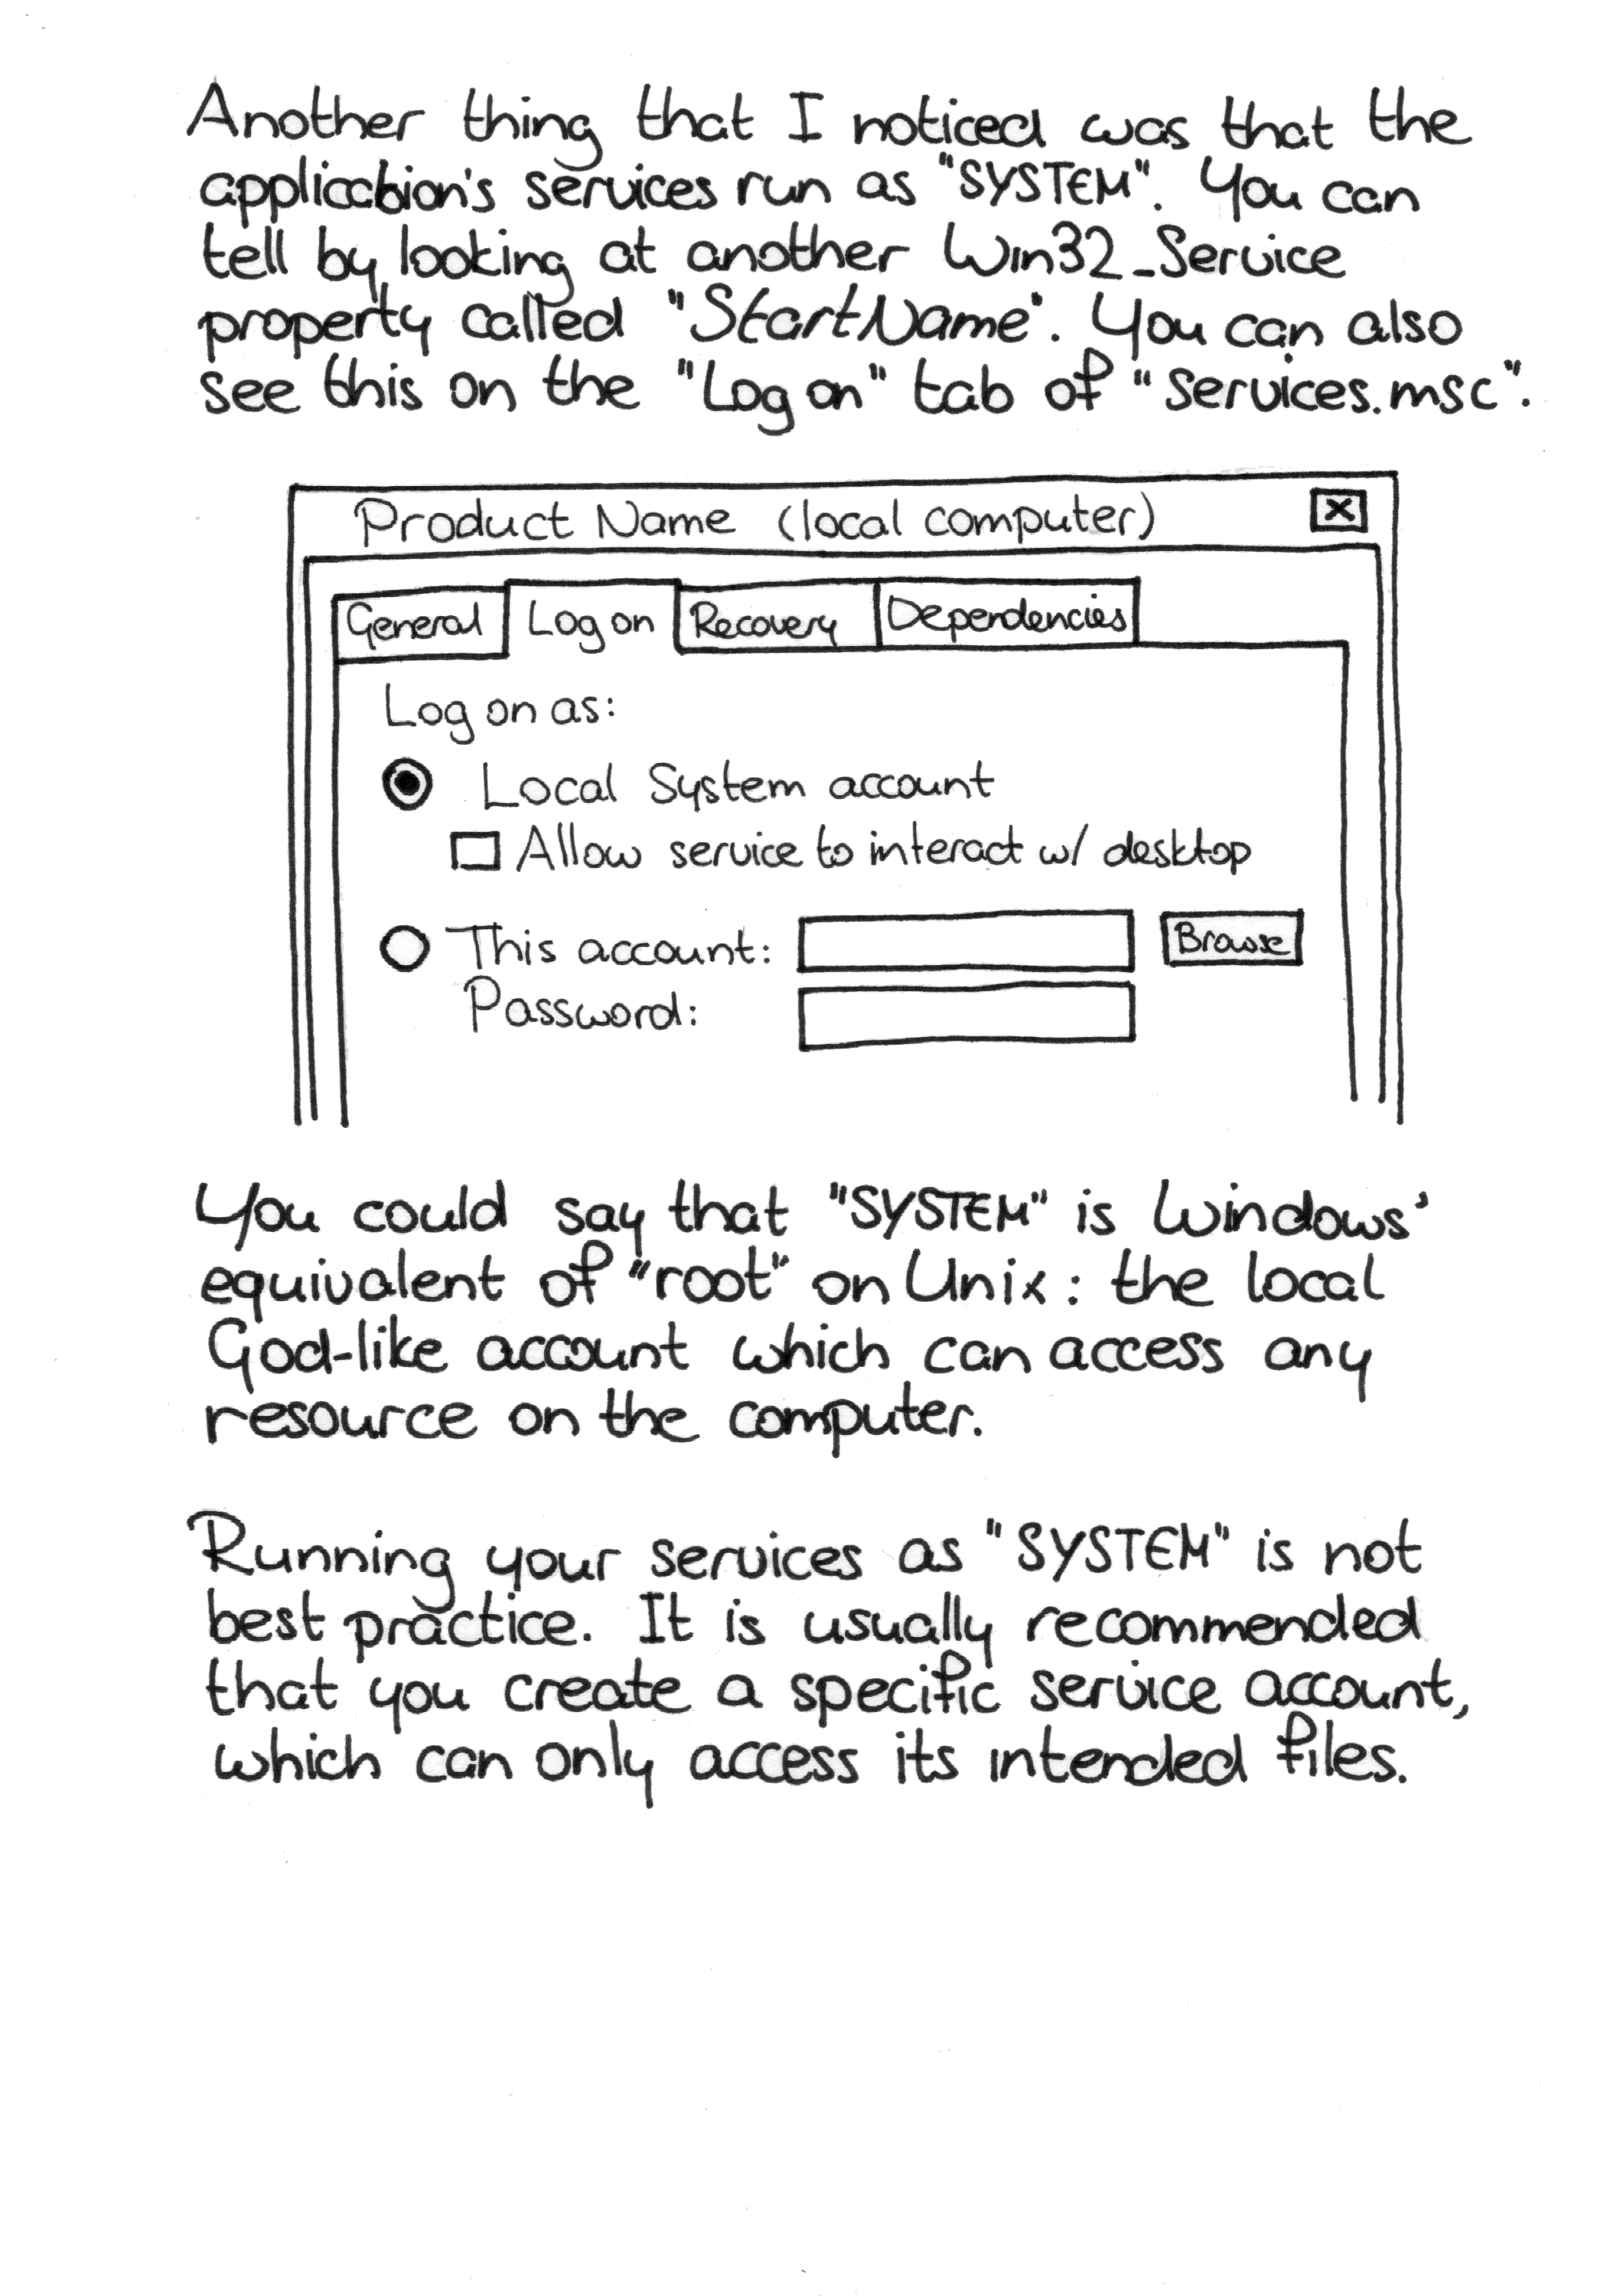 Another thing that I noticed was that the
application's services run as "SYSTEM". You can
tell by looking at another Win32_Service
property called "StartName". You can also
see this on the "Log on" tab of "services.msc".
Product Name (local computer) X
General Log on Recovery Dependencies
Log on as:
Local System account
Allow service to interact w/ desktop
This account: Browse
Password:
You could say that "SYSTEM" is Windows'
equivalent of "root" on Unix: the local
God-like account which can access any
resource on the computer.
Running your services as "SYSTEM" is not
best practice. It is usually recommended
that you create a specific service account,
which can only access its intended files.